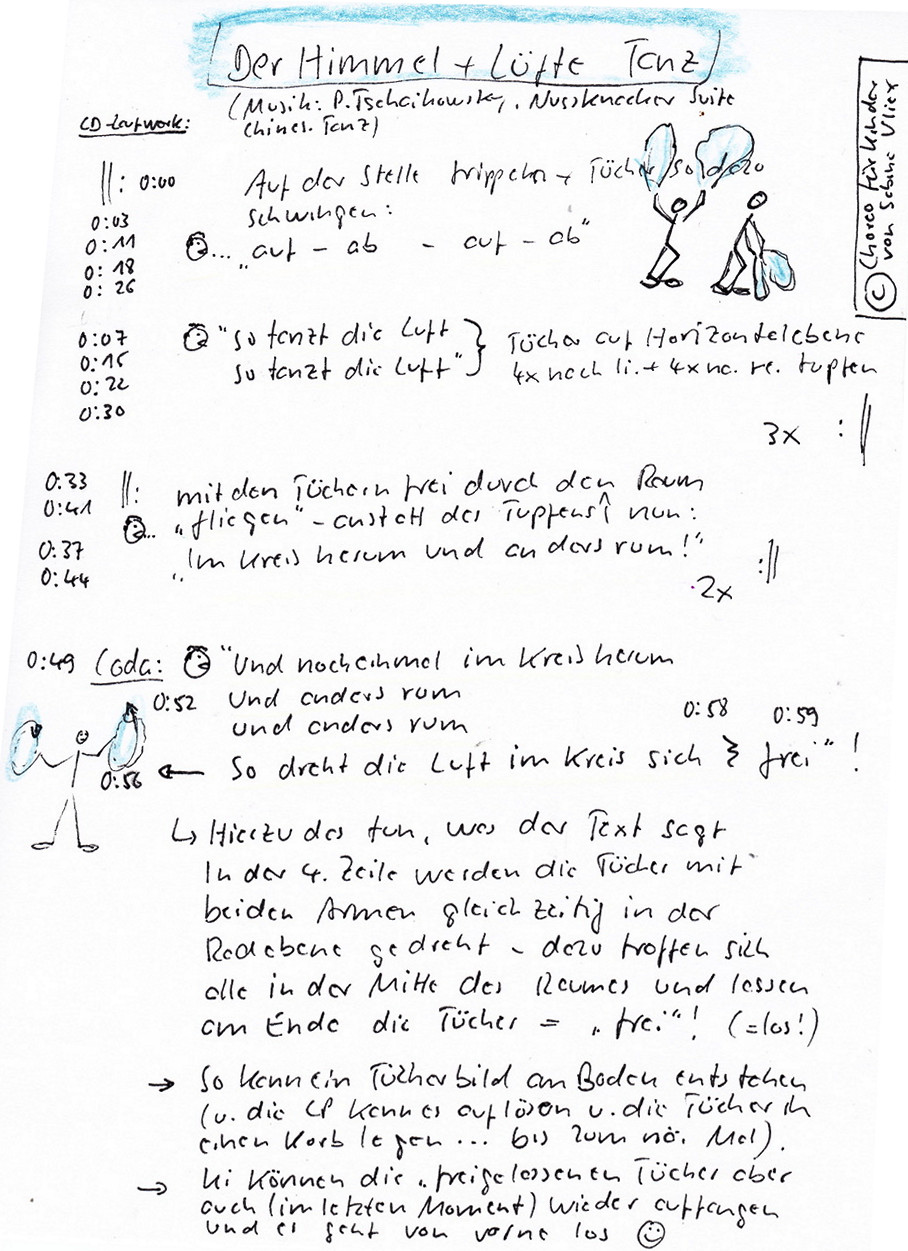 Der Himmel + Lüfte Tanz
(Musik: P. Tschaikowsky, Nussknacker Suite
chines. Tanz)
© Choreo für Kinder
von Sabine Vliex
CD-Laufwerk:
||: 0:00 Auf der Stelle trippeln + Tücher so dazu
schwingen:
0:03
0:11 ... "auf - ab - auf - ab"
0:18
0:26
0:07 "So tanzt die Luft
0:15 so tanzt die Luft" } Tücher auf Horizontalebene
4x nach li. + 4x na. re. tupfen
0:22
0:30
3x :||
0:33 ||: mit den Tüchern frei durch den Raum
0:41 ... "fliegen" - anstatt des Tupfens nun:
0:37 "Im Kreis herum und anders rum!"
0:44
2x :||
0:49 Coda: "Und nocheinmal im Kreis herum
0:52 und anders rum
und anders rum
0:58 0:59
0:56 ← So dreht die Luft im Kreis sich } frei"!
↳ Hierzu das tun, was der Text sagt
In der 4. Zeile werden die Tücher mit
beiden Armen gleichzeitig in der
Radebene gedreht - dazu treffen sich
alle in der Mitte des Raumes und lassen
am Ende die Tücher = "frei"! (=los!)
→ So kann ein Tücherbild am Boden entstehen
(u. die LP kann es auflösen u. die Tücher in
einen Korb legen ... bis zum nä. Mal).
→ Ki können die "freigelassenen Tücher aber
auch (im letzten Moment) wieder auffangen
und es geht von vorne los